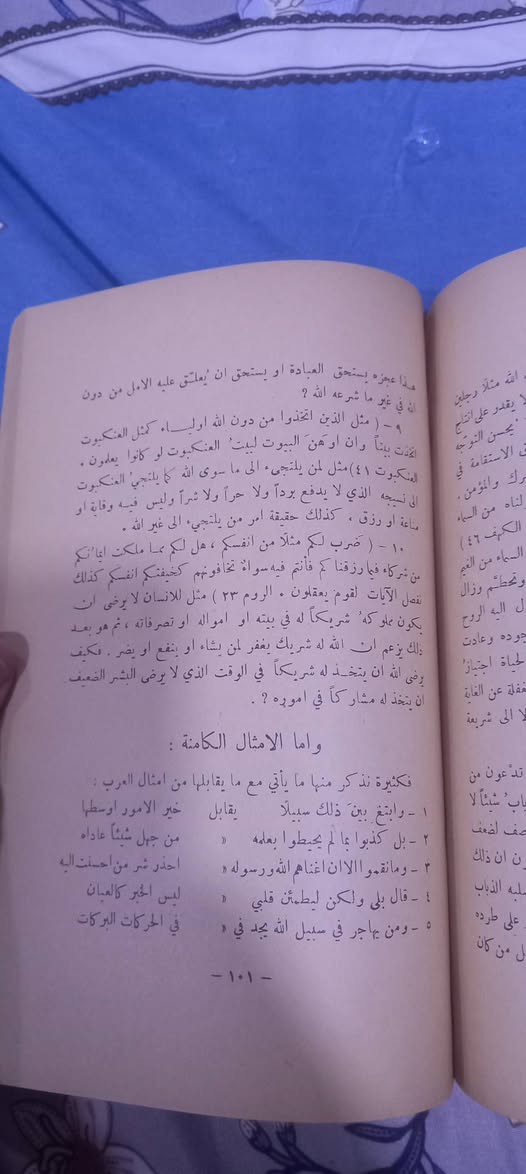 هذا عجزه يستحق العبادة او يستحق ان يُعلّق عليه الامل من دون
الله في غير ما شرعه الله ؟
٩ - ( مثل الذين اتخذوا من دون الله اولياء كمثل العنكبوت
اتخذت بيتاً وان اوهَنَ البيوت لبيتُ العنكبوت لو كانوا يعلمون .
العنكبوت ٤١) مثل لمن يلتجيء الى ما سوى الله كما يلتجيُ العنكبوت
الى نسيجه الذي لا يدفع برداً ولا حراً ولا شراً وليس فيه وقاية او
مناعة او رزق ، كذلك حقيقة امر من يلتجيء الى غير الله .
١٠ - ( ضَرب لكم مثلًا من انفسكم ، هل لكم مما ملكت ايمانكم
من شركاء فيما رزقنا كم فأنتم فيه سواءٌ تخافونهم كخيفتكم انفسكم كذلك
نفصل الآيات لقوم يعقلون . الروم ٢٣ ) مثل للانسان لا يرضى ان
يكون مملوكهُ شريكاً له في بيته او امواله او تصرفاته ، ثم هو بعد
ذلك يزعم ان الله له شريك يغفر لمن يشاء او ينفع او يضر . فكيف
يرضى الله ان يتخذ له شريكاً في الوقت الذي لا يرضى البشر الضعيف
ان يتخذ له مشاركاً في اموره ؟ .
واما الامثال الكامنة :
فكثيرة نذكر منها ما يأتي مع ما يقابلها من امثال العرب :
١ - وابتغ بينَ ذلك سبيلًا يقابل خير الامور اوسطها
٢ - بل كذبوا بما لم يحيطوا بعلمه » من جهل شيئاً عاداه
٣ - وما نقموا الا ان اغناهم الله ورسوله » احذر شر من احسنت اليه
٤ - قال بلى ولكن ليطمئن قلبي » ليس الخبر كالعيان
٥ - ومن يهاجر في سبيل الله يجد في » في الحركات البركات
- ١٠١ -
الله مثلًا رجلين
لا يقدر على انتاج
يُحسن التوجّه
الاستقامة في
رك والمؤمن .
لناه من السماء
الكهف ٤٦ )
السماء من الغيم
وتحطّم رزال
ل اليه الروح
جوده وعادت
لحياة اجتيازُ
غفلة عن الغاية
لا الى شريعة
تدْعون من
بابُ شيئاً لا
صف لضعف
ون ان ذلك
سلبه الذباب
على طرده
ل من كان